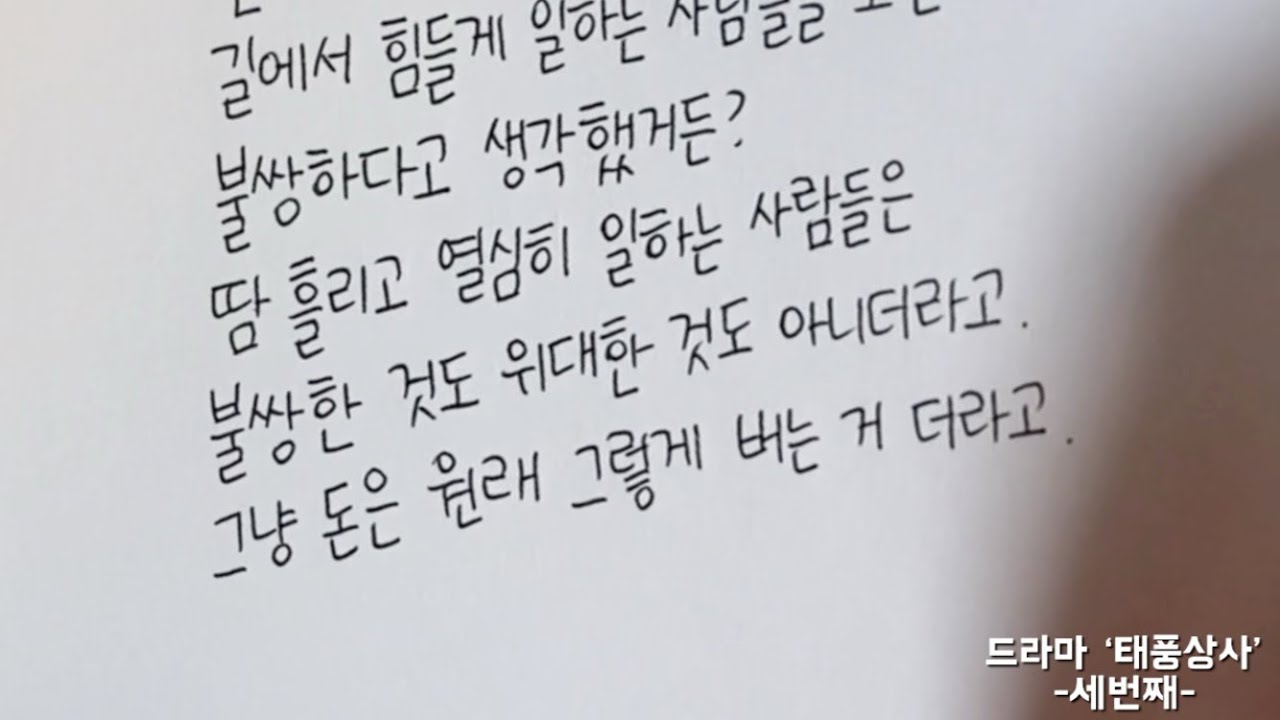 길에서 힘들게 일하는 사람들을
불쌍하다고 생각했거든?
땀 흘리고 열심히 일하는 사람들은
불쌍한 것도 위대한 것도 아니더라고.
그냥 돈은 원래 그렇게 버는 거 더라고.
드라마 '태풍상사'
-세번째-